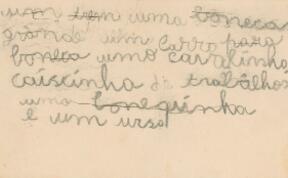 um trem uma boneca
grande um carro para
boneca umo cavalinho
caiscinha de trabalhos
uma bonequinha
e um urso